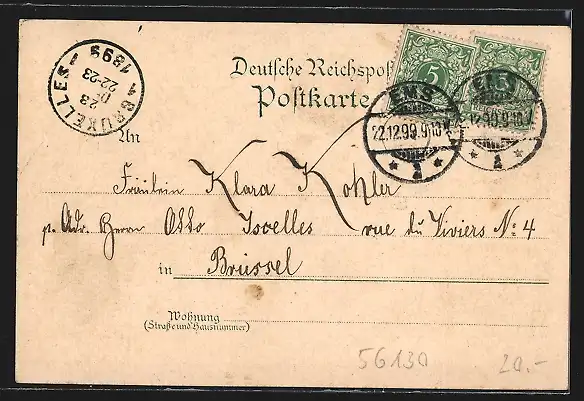 Deutsche Reichspost
Postkarte
5
EMS
22.12.99.9-10V.
a
EMS
22.12.99.9-10V.
a
BRUXELLES 1
23
DE
22-23
1899
An
Fräulein Klara Kohler
p. Adr. Herrn Otto Isvelles rue du Viviers N: 4
in Brüssel
Wohnung
(Straße und Hausnummer)
56130
20.-